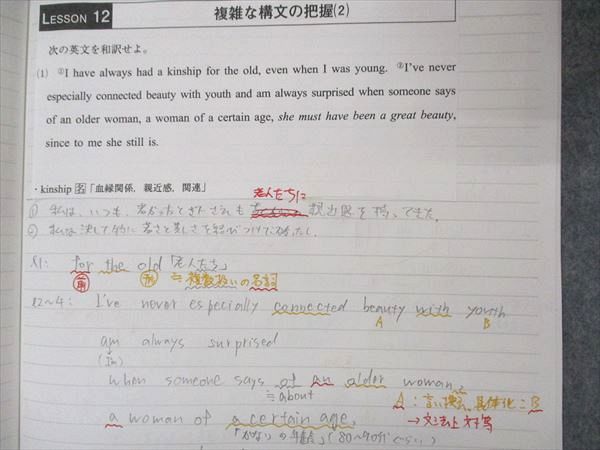 LESSON 12 複雑な構文の把握(2)
次の英文を和訳せよ。
(1) ①I have always had a kinship for the old, even when I was young. ②I've never
especially connected beauty with youth and am always surprised when someone says
of an older woman, a woman of a certain age, she must have been a great beauty,
since to me she still is.
・kinship 名「血縁関係, 親近感, 関連」
老人たちに
① 私は、いつも、若かったときでさえも 親近感を持ってきた。
② 私は決して
l1: for the old「老人たち」
前 形 ≒ 複数扱いの名詞
l2~4: I've never especially connected beauty with youth
A B
am always surprised
(I'm)
when someone says of an older woman,
≒about A:言い換え、具体化:B
a woman of a certain age, →文法上対等
「かなりの年齢」(80~90才ぐらい)